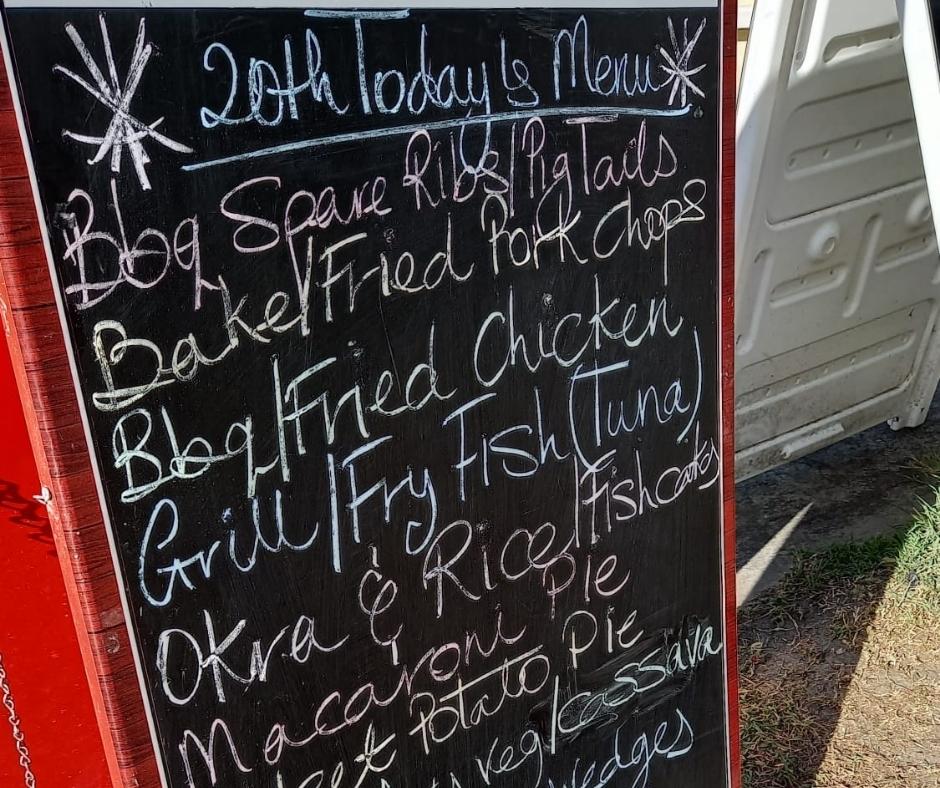 20th Today's Menu
Bbq Spare Ribs/Pig Tails
Bake/Fried Pork Chops
Bbq/Fried Chicken
Grill/Fry Fish (Tuna)
Okra & Rice/Fishcakes
Macaroni Pie
Potato Pie
Veg/Cassava